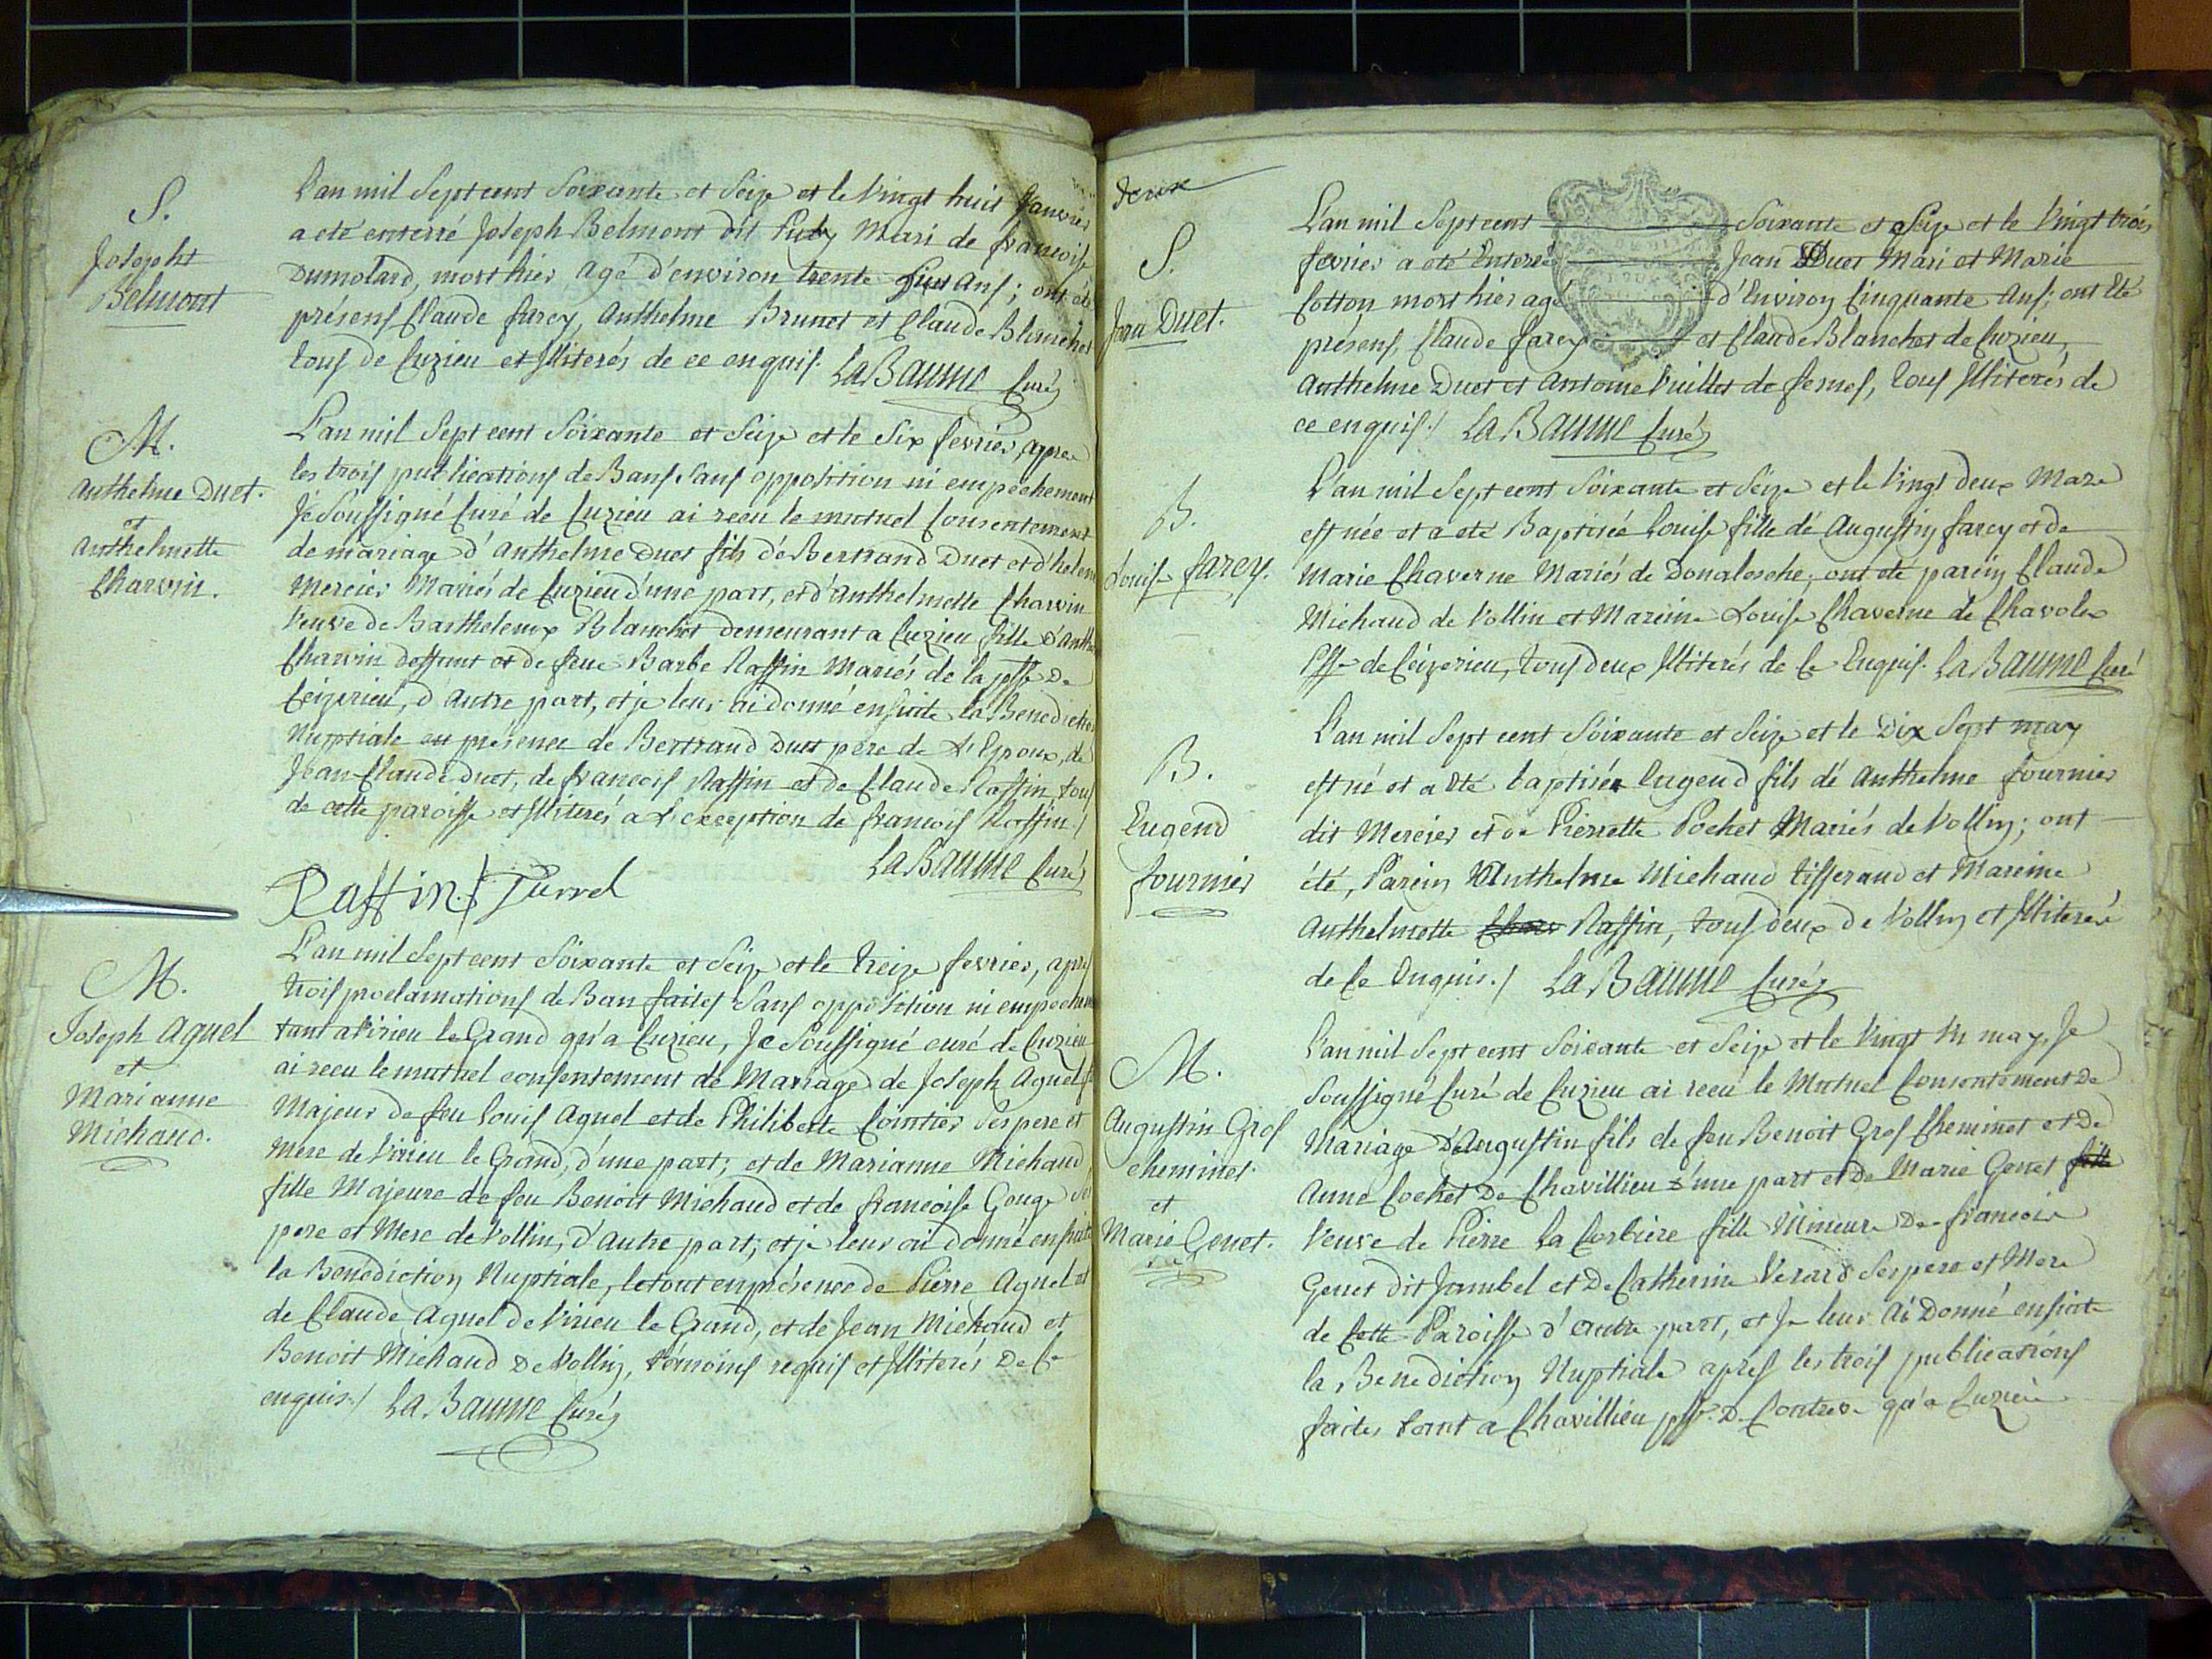 S.
Josepht
Belmont
L'an mil Sept cent Soixante et Seize et le Vingt huit Janvier
a eté enterré Joseph Belmont dit Puty Mari de francoise
Dumolard, mort hier, agé d'environ trente Six ans; ont été
présens Claude farcy, Anthelme Brunet et Claude Blanchet
tous de Cuzieu et Illiterés de ce enquis. La Baume Curé
M.
Anthelme Duet.
et
Anthelmette
Charvin.
L'an mil Sept cent Soixante et Seize et le Six fevrier, apres
les trois publications de Bans Sans opposition ni empechement
Je Soussigné Curé de Cuzieu ai receu le mutuel Consentement
de mariage d'Anthelme Duet fils de Bertrand Duet et d'helene
Mercier Mariés de Cuzieu d'une part, et d'Anthelmette Charvin
Veuve de Barthelemy Blanchet demeurant a Cuzieu fille d'Anthe
Charvin deffunt et de feue Barbe Raffin Mariés de la psse De
Ceizerieu, d'autre part, et je leur ai donné ensuite la Benediction
Nuptiale en présence de Bertrand Duet pere de L'Epoux, de
Jean Claude Duet, de francois Raffin et de Claude Raffin tous
de cette paroisse et Illiterés a L'exception de francois Raffin./
La Baume Curé
Raffin./ Purrel
M.
Joseph Aguel
et
Marianne
Michaud.
L'an mil Sept cent Soixante et Seize et le treize fevrier, après
trois proclamations de Ban faites Sans opposition ni empechement
tant a Virieu le Grand qu'a Cuzieu, Je Soussigné curé de Cuzieu
ai receu le mutuel consentement de Mariage de Joseph Aguel fils
Majeur de feu Louis Aguel et de Philiberte Cointier Ses pere et
Mere de Virieu le Grand, d'une part; et de Marianne Michaud
fille Majeure de feu Benoit Michaud et de francoise Gouge Ses
pere et Mere de Vollin, d'autre part; et je leur ai donné ensuite
la Benediction Nuptiale, le tout en présence de Pierre Aguel et
de Claude Aguel de Virieu le Grand, et de Jean Michaud et
Benoit Michaud De Vollin, témoins requis et Illiterés De Ce
enquis./ La Baume Curé
deux
S.
Jean Duet.
L'an mil Sept cent Soixante et Seize et le Vingt trois
fevrier a eté Enterré Jean Duet Mari et Marie
Cotton mort hier agé d'Environ Cinquante Ans; ont Eté
présens, Claude farcy et Claude Blanchet de Cuzieu,
Anthelme Duet et Antoine Vuillet de fesnes, tous Illiterés de
ce enquis./ La Baume Curé
B.
Louise farcy.
L'an mil Sept cent Soixante et Seize et le Vingt deux Mars
est née et a eté Baptisée Louise fille de Augustin farcy et de
Marie Chaverne Mariés de Donalesche; ont eté parein Claude
Michaud de Vollin et Mareine Louise Chaverne de Chavolex
Psse de Ceizerieu, tous deux Illiterés de Ce Enquis. La Baume Curé
B.
Eugend
fournier
L'an mil Sept cent Soixante et Seize et le Dix Sept may
est né et a Eté baptisér Eugend fils de Anthelme fournier
dit Mercier et de Pierrette Pochet Mariés de Vollin; ont
été, Parein Anthelme Michaud tisserand et Mareine
Anthelmette Raffin, tous deux de Vollin et Illiterés
de Ce Enquis./ La Baume Curé
M.
Augustin Gros
cheminet
et
Marie Genet.
L'an mil Sept cent Soixante et Seize et le Vingt Un may, Je
Soussigné Curé de Cuzieu ai receu le Mutuel Consentement De
Mariage D'Augustin fils de feu Benoit Gros Cheminet et De
Anne Cochet De Chavillieu d'une part et De Marie Genet fille
Veuve de Pierre La Corbiere fille Mineure De francois
Genet dit Jambel et De Catherine Verard Ses pere et Mere
de Cette Paroisse d'autre part, et Je leur Ai Donné ensuite
la Benediction Nuptiale après les trois publications
faites tant a Chavillieu psse D. Contrevo qu'a Cuzieu